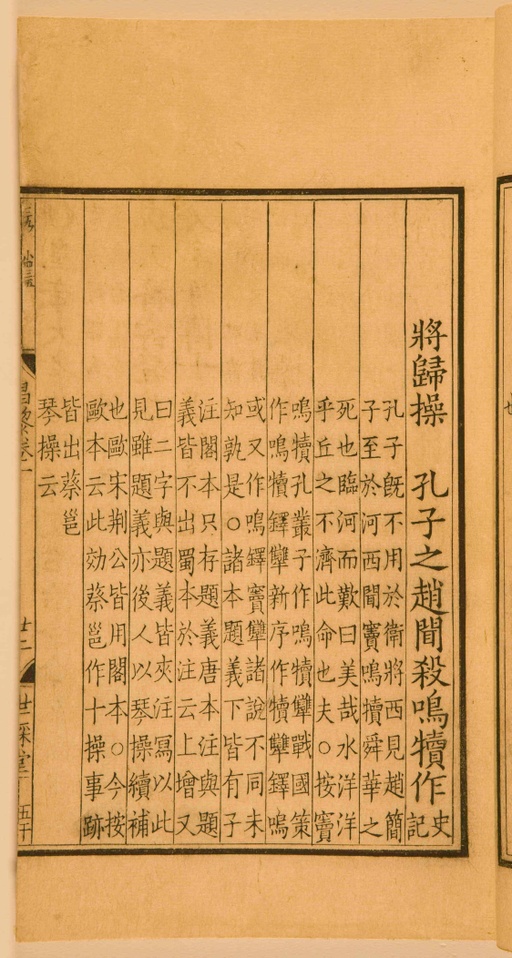 將歸操　孔子之趙聞殺鳴犢作史記
孔子旣不用於衞將西見趙簡
子至於河西聞竇鳴犢舜華之
死也臨河而歎曰美哉水洋洋
乎丘之不濟此命也夫○按竇
鳴犢孔叢子作鳴犢犨戰國策
作鳴犢鐸犨新序作犢犨鐸鳴
或又作鳴鐸竇犨諸說不同未
知孰是○諸本題義下皆有子
注閣本只存題義唐本注與題
義皆不出蜀本於注云上增又
曰二字與題義皆夾注冩以此
見雖題義亦後人以琴操續補
也歐宋荆公皆用閣本○今按
歐本云此効蔡邕作十操事跡
皆出蔡邕
琴操云
昌黎卷一
廿二
世綵堂